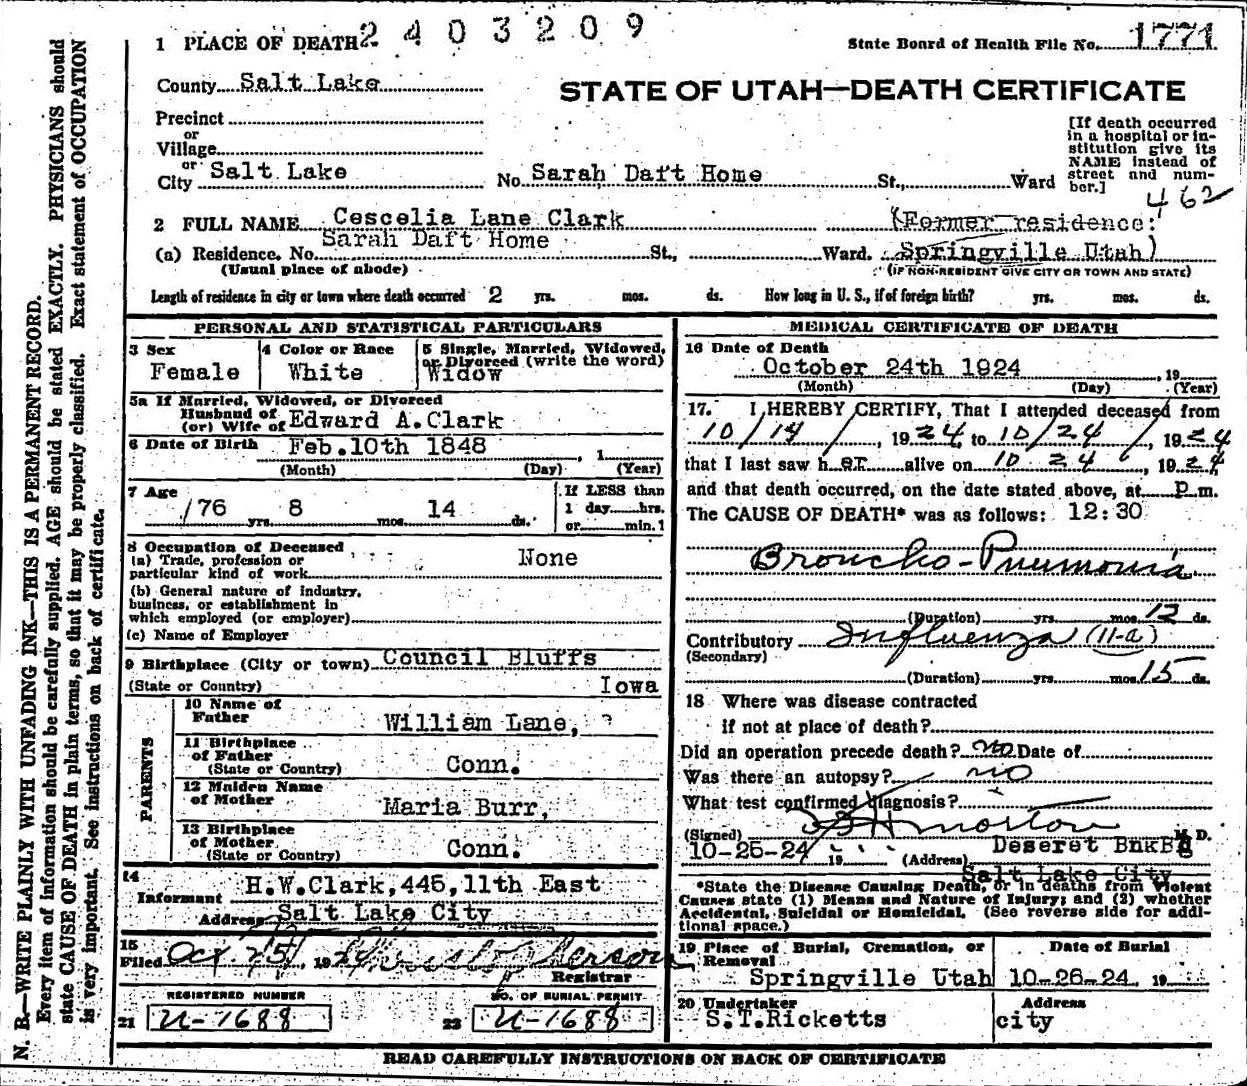 1 PLACE OF DEATH 2403209
State Board of Health File No. 1771
County Salt Lake
STATE OF UTAH—DEATH CERTIFICATE
Precinct
or
Village
or
City Salt Lake No. Sarah Daft Home St., Ward
[If death occurred
in a hospital or in-
stitution give its
NAME instead of
street and num-
ber.]
462
2 FULL NAME Cescelia Lane Clark (Former residence:
(a) Residence. No. Sarah Daft Home St., Ward. Springville Utah)
(Usual place of abode) (IF NON-RESIDENT GIVE CITY OR TOWN AND STATE)
Length of residence in city or town where death occurred 2 yrs. mos. ds. How long in U. S., if of foreign birth? yrs. mos. ds.
PERSONAL AND STATISTICAL PARTICULARS
3 Sex
Female
4 Color or Race
White
5 Single, Married, Widowed,
or Divorced (write the word)
Widow
5a If Married, Widowed, or Divorced
Husband of
(or) Wife of Edward A.Clark
6 Date of Birth Feb.10th 1848 , 1
(Month) (Day) (Year)
7 Age
76 yrs. 8 mos. 14 ds.
If LESS than
1 day hrs.
or min.1
8 Occupation of Deceased
(a) Trade, profession or
particular kind of work None
(b) General nature of industry,
business, or establishment in
which employed (or employer)
(c) Name of Employer
9 Birthplace (City or town) Council Bluffs
(State or Country) Iowa
PARENTS
10 Name of
Father William Lane, ?
11 Birthplace
of Father
(State or Country) Conn.
12 Maiden Name
of Mother Maria Burr,
13 Birthplace
of Mother
(State or Country) Conn.
14
Informant H.W.Clark,445,11th East
Address Salt Lake City
15
Filed Oct 25, 1924
Registrar
REGISTERED NUMBER
21 U-1688
NO. OF BURIAL PERMIT
22 U-1688
MEDICAL CERTIFICATE OF DEATH
16 Date of Death
October 24th 1924 , 19
(Month) (Day) (Year)
17. I HEREBY CERTIFY, That I attended deceased from
10/14/, 1924, to 10/24/, 1924
that I last saw her alive on 10 24, 1924
and that death occurred, on the date stated above, at p m.
The CAUSE OF DEATH* was as follows: 12:30
Broncho-Pneumonia
(Duration) yrs. mos. 12 ds.
Contributory Influenza (11-a)
(Secondary)
(Duration) yrs. mos. 15 ds.
18 Where was disease contracted
if not at place of death?
Did an operation precede death? no Date of
Was there an autopsy? no
What test confirmed diagnosis?
(Signed) M. D.
10-25-24 19 (Address) Deseret BnkBg
Salt Lake City
*State the Disease Causing Death, or in deaths from Violent
Causes state (1) Means and Nature of Injury; and (2) whether
Accidental, Suicidal or Homicidal. (See reverse side for addi-
tional space.)
19 Place of Burial, Cremation, or
Removal
Springville Utah
Date of Burial
10-26-24, 19
20 Undertaker
S.T.Ricketts
Address
city
READ CAREFULLY INSTRUCTIONS ON BACK OF CERTIFICATE
N. B.—WRITE PLAINLY WITH UNFADING INK—THIS IS A PERMANENT RECORD.
Every item of information should be carefully supplied. AGE should be stated EXACTLY. PHYSICIANS should
state CAUSE OF DEATH in plain terms, so that it may be properly classified. Exact statement of OCCUPATION
is very important. See instructions on back of certificate.